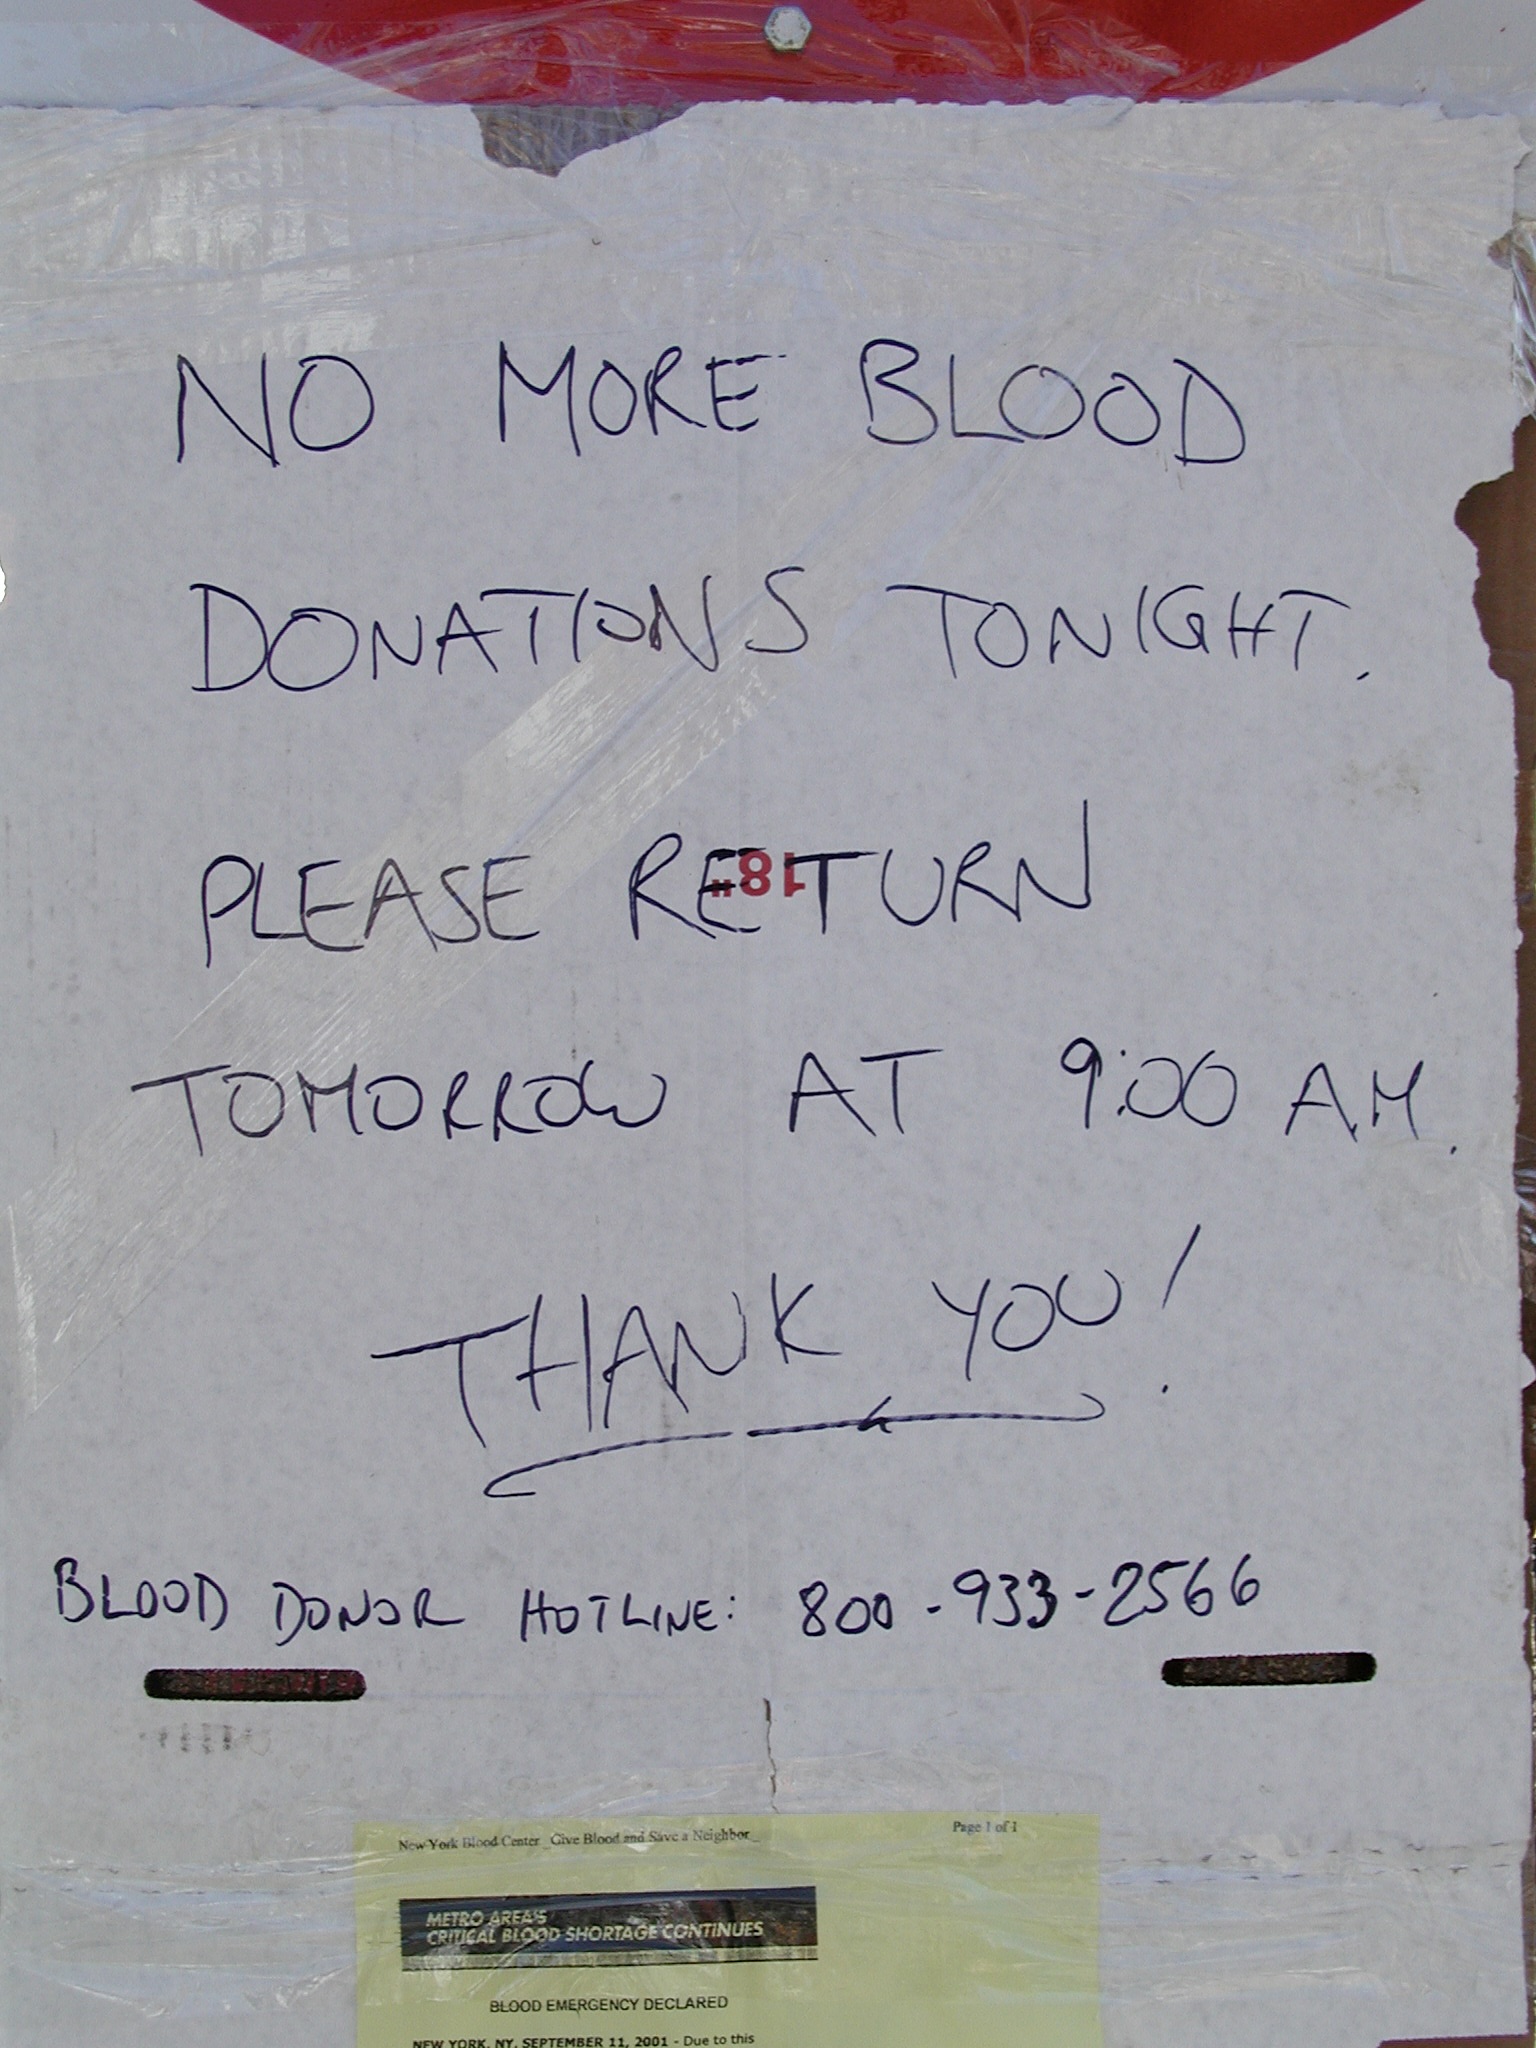 NO MORE BLOOD
DONATIONS TONIGHT.
PLEASE RETURN
18"
TOMORROW AT 9:00 A.M.
THANK YOU!
BLOOD DONOR HOTLINE: 800-933-2566
New York Blood Center _Give Blood and Save a Neighbor_ Page 1 of 1
METRO AREA'S
CRITICAL BLOOD SHORTAGE CONTINUES
BLOOD EMERGENCY DECLARED
NEW YORK, NY, SEPTEMBER 11, 2001 - Due to this